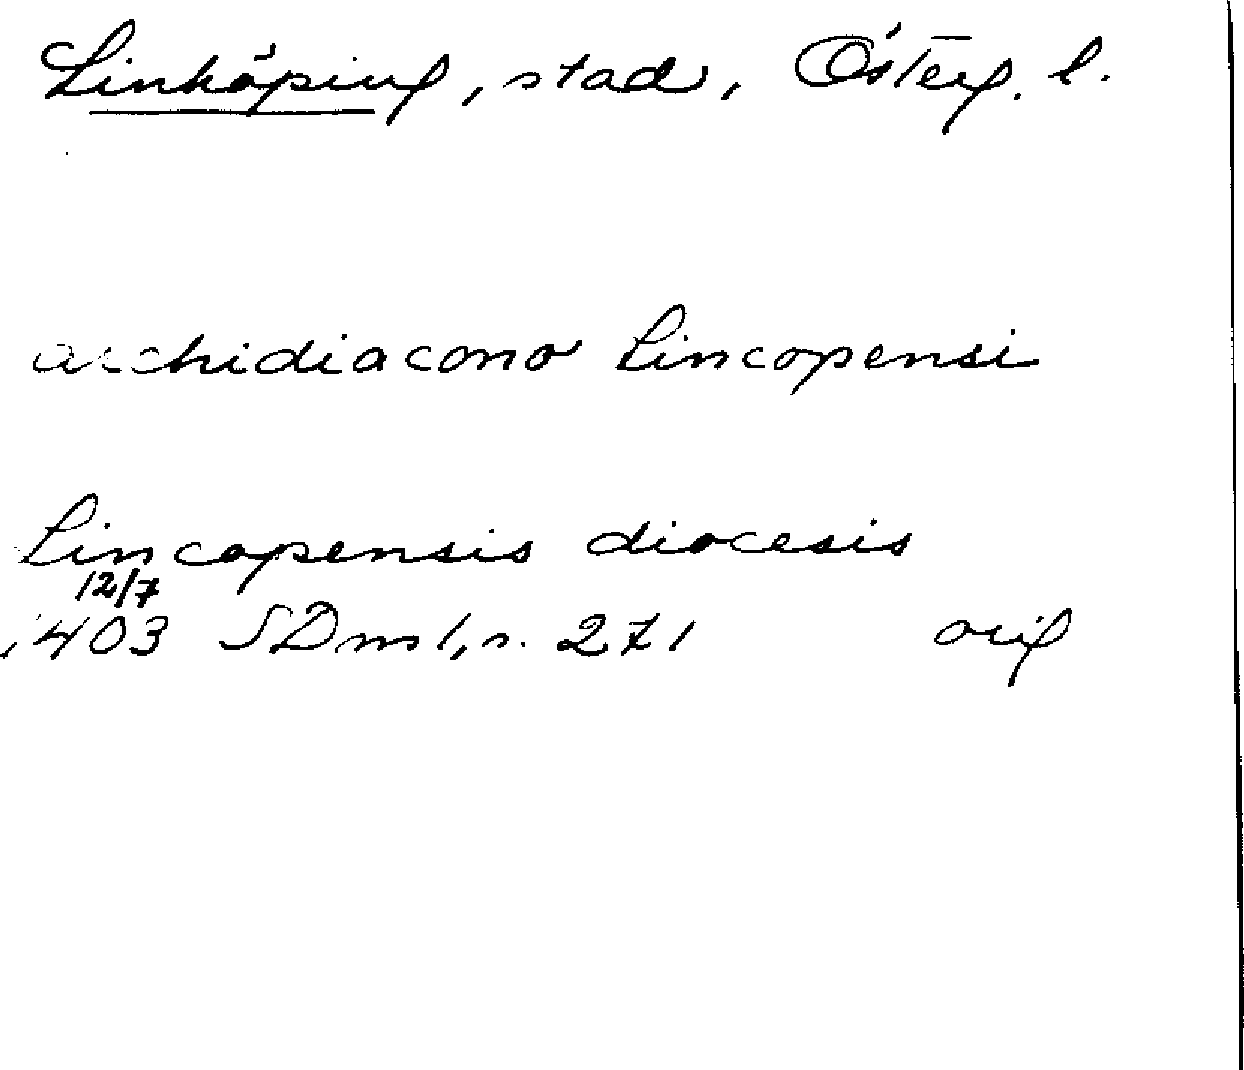 Linköping, stad, Österg. l.
archidiacono Lincopensi
Lincopensis diocesis
12/7
1403 SDns 1, s. 271 orig